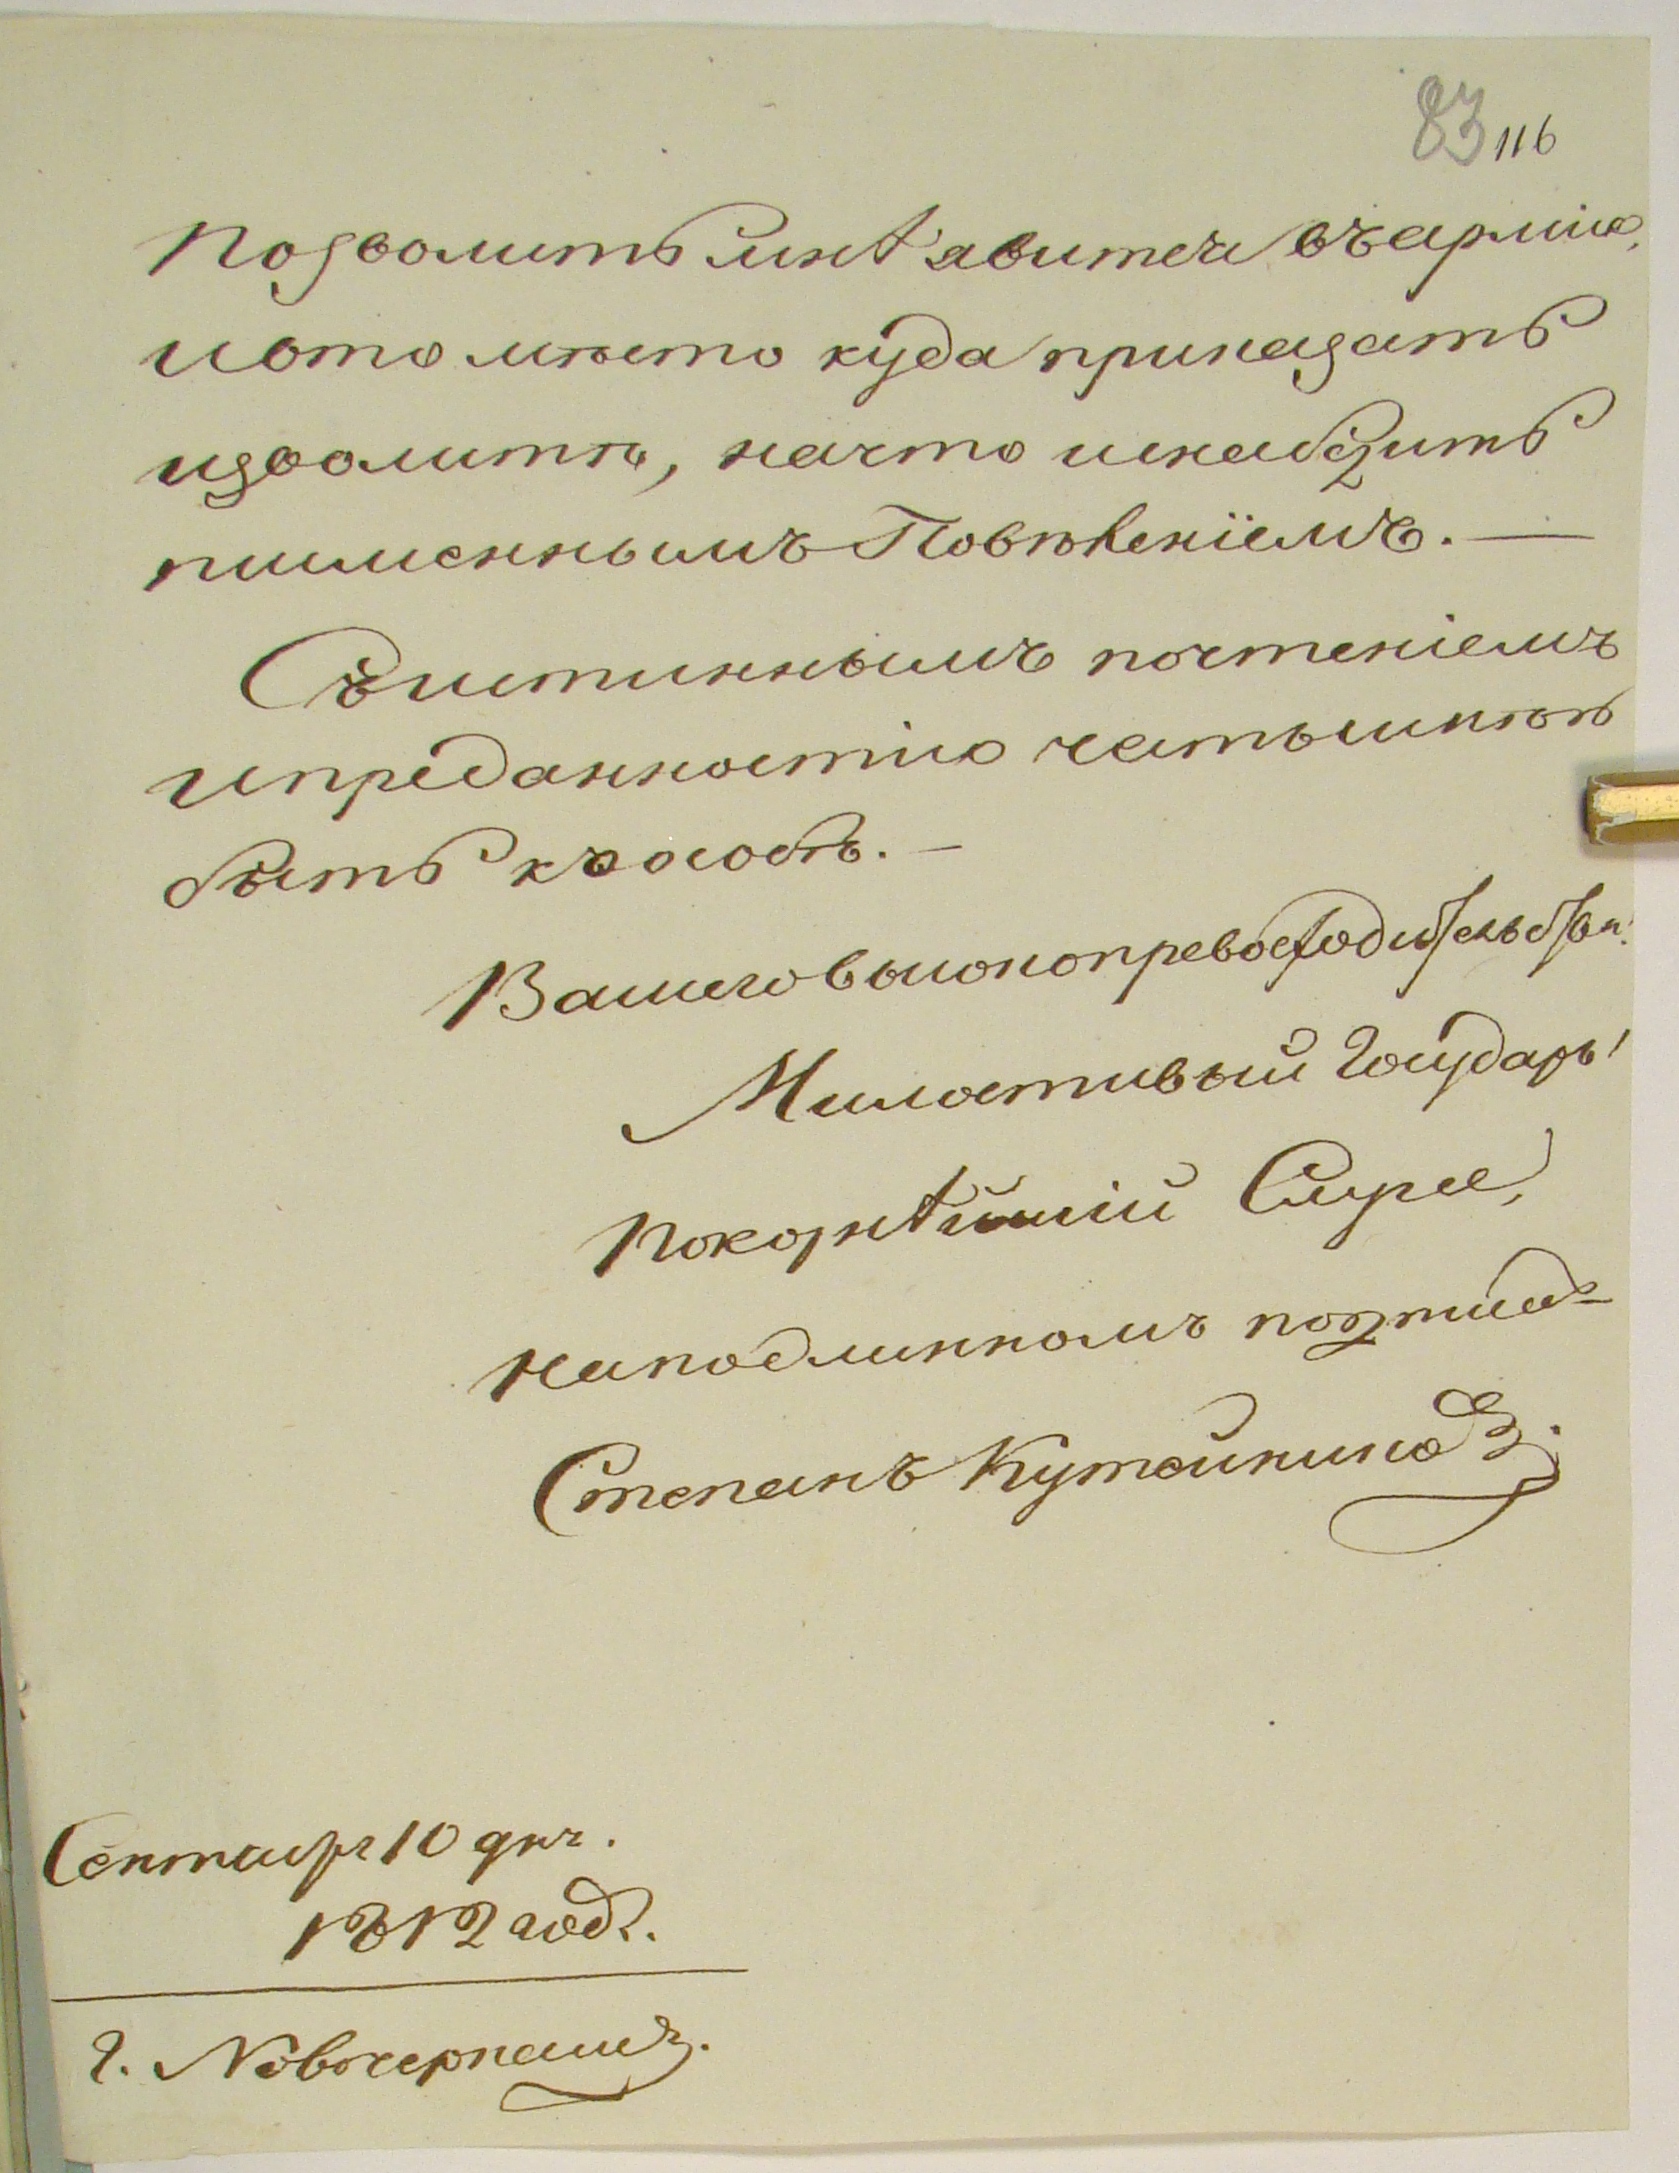 83 116
Позволить мнѣ явитса въ армію,
и вто мѣсто куда приказать
изволите, начто и снабдить
писменнымъ Повѣленіемъ. —
Съ истиннымъ почтеніемъ
и преданностію честь имѣю
быть къ особѣ. —
Вашего высокопревосходительства.
Милостивый Государь!
Покорнѣйшій Слуга,
На подлинномъ подписа-
Степанъ Кутейниковъ.
Сентября 10 дня.
1812 года.
г. Новочеркаскъ.